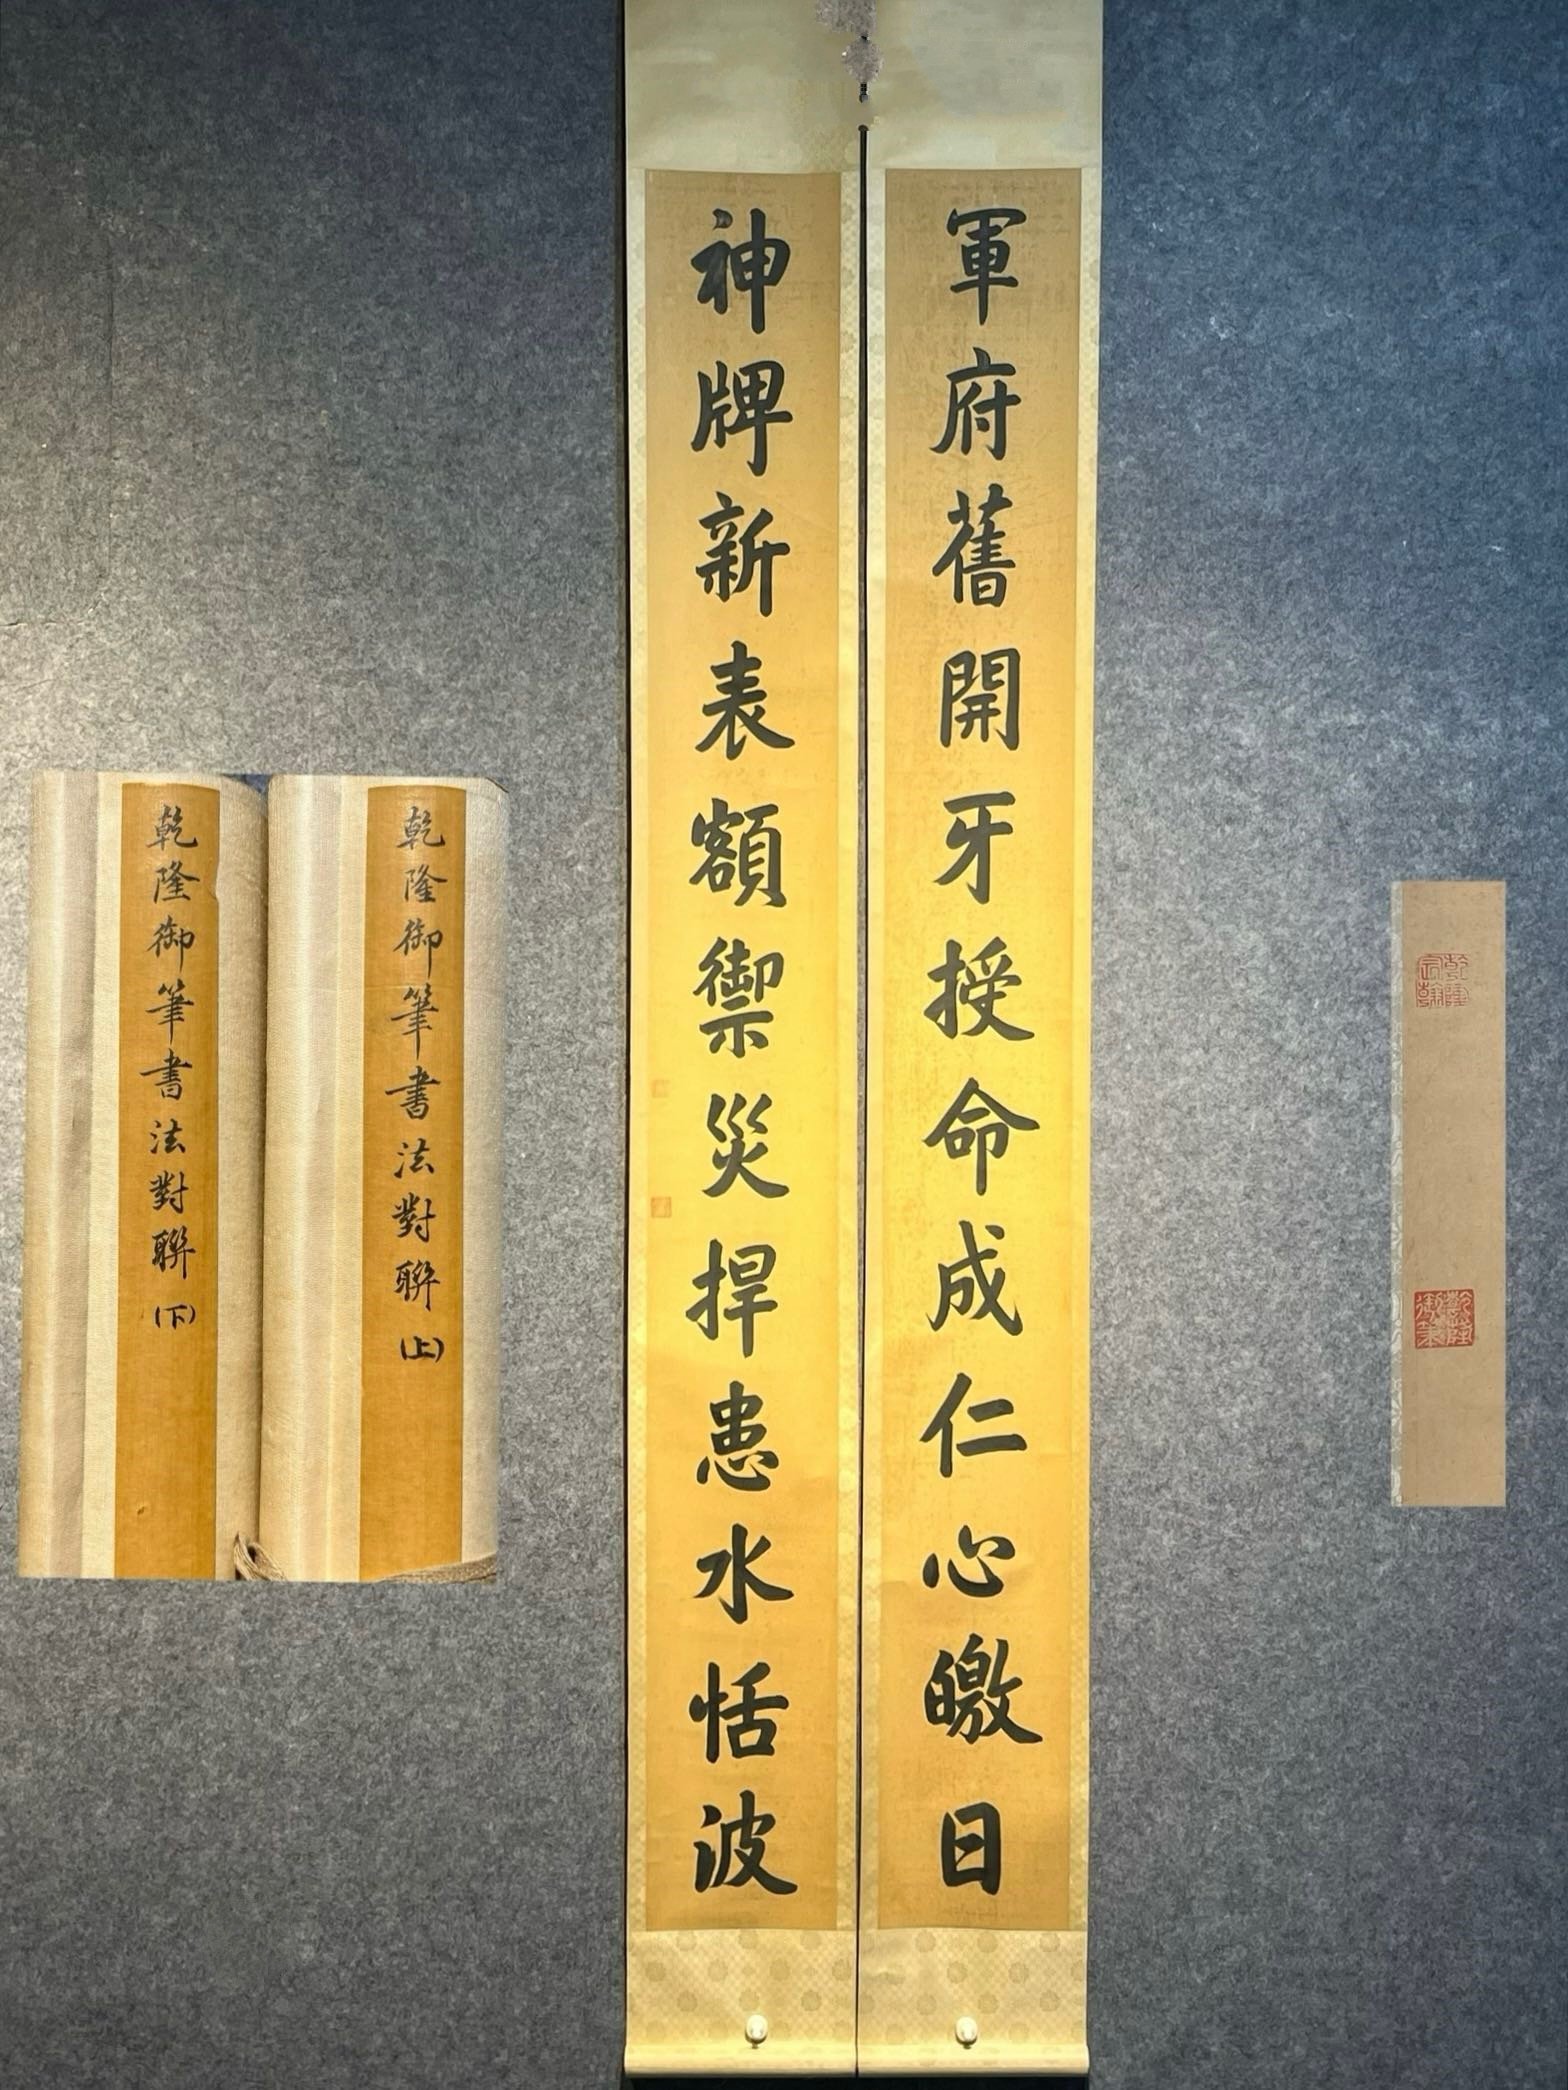 軍府舊開牙授命成仁心皦日
神牌新表額禦災捍患水恬波
乾隆御筆書法對聯(上)
乾隆御筆書法對聯(下)
乾隆
宸翰
乾隆
御筆